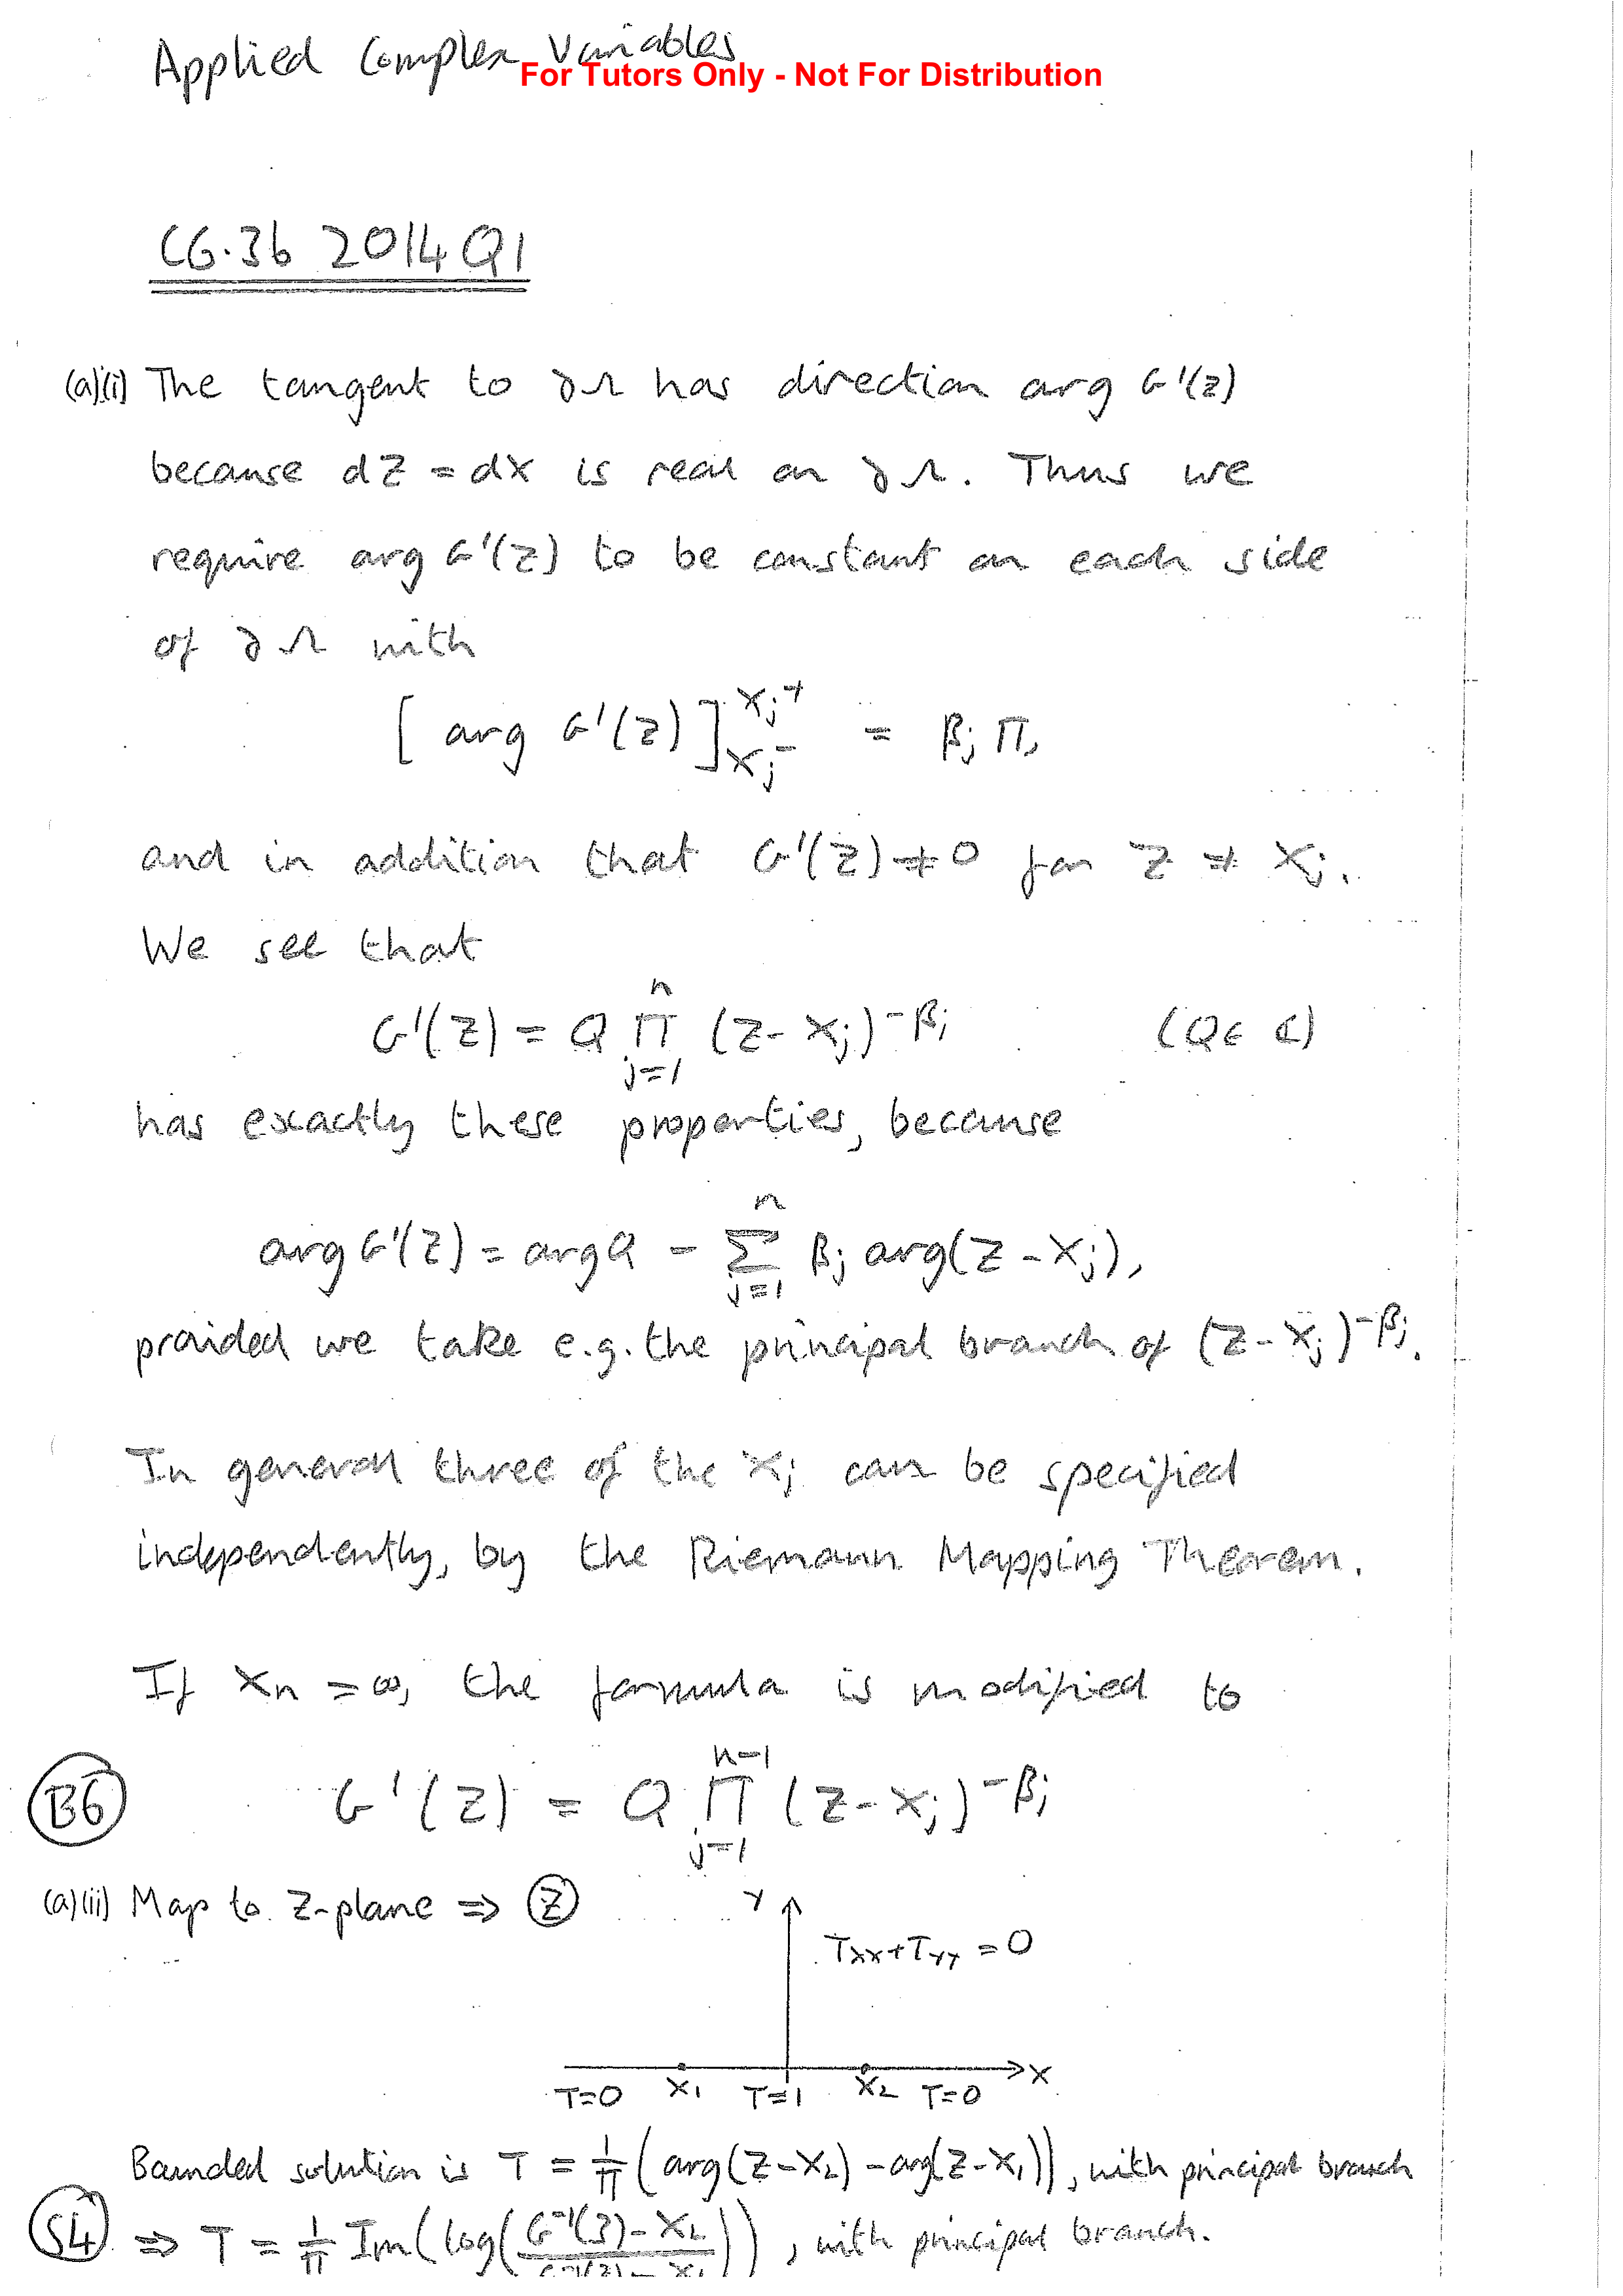 Applied Complex Variables
For Tutors Only - Not For Distribution
C6.3b 2014 Q1
(a)(i) The tangent to ∂Ω has direction arg G'(Z)
because dZ = dX is real on ∂Ω. Thus we
require arg G'(Z) to be constant on each side
of ∂Ω with
[arg G'(Z)]_{X_j-}^{X_j+} = β_j π,
and in addition that G'(Z) ≠ 0 for Z ≠ X_j.
We see that
G'(Z) = Q ∏_{j=1}^{n} (Z - X_j)^{-β_j} (Q ∈ ℂ)
has exactly these properties, because
arg G'(Z) = arg Q - ∑_{j=1}^{n} β_j arg(Z - X_j),
provided we take e.g. the principal branch of (Z - X_j)^{-β_j}.
In general three of the X_j can be specified
independently, by the Riemann Mapping Theorem.
If X_n = ∞, the formula is modified to
B6 G'(Z) = Q ∏_{j=1}^{n-1} (Z - X_j)^{-β_j}
(a)(ii) Map to Z-plane ⇒ Z
Y
T_{XX} + T_{YY} = 0
X
T=0 X_1 T=1 X_2 T=0
Bounded solution is T = 1/π (arg(Z - X_2) - arg(Z - X_1)), with principal branch
S4 ⇒ T = 1/π Im(log((G^{-1}(z) - X_2)/(G^{-1}(z) - X_1))), with principal branch.